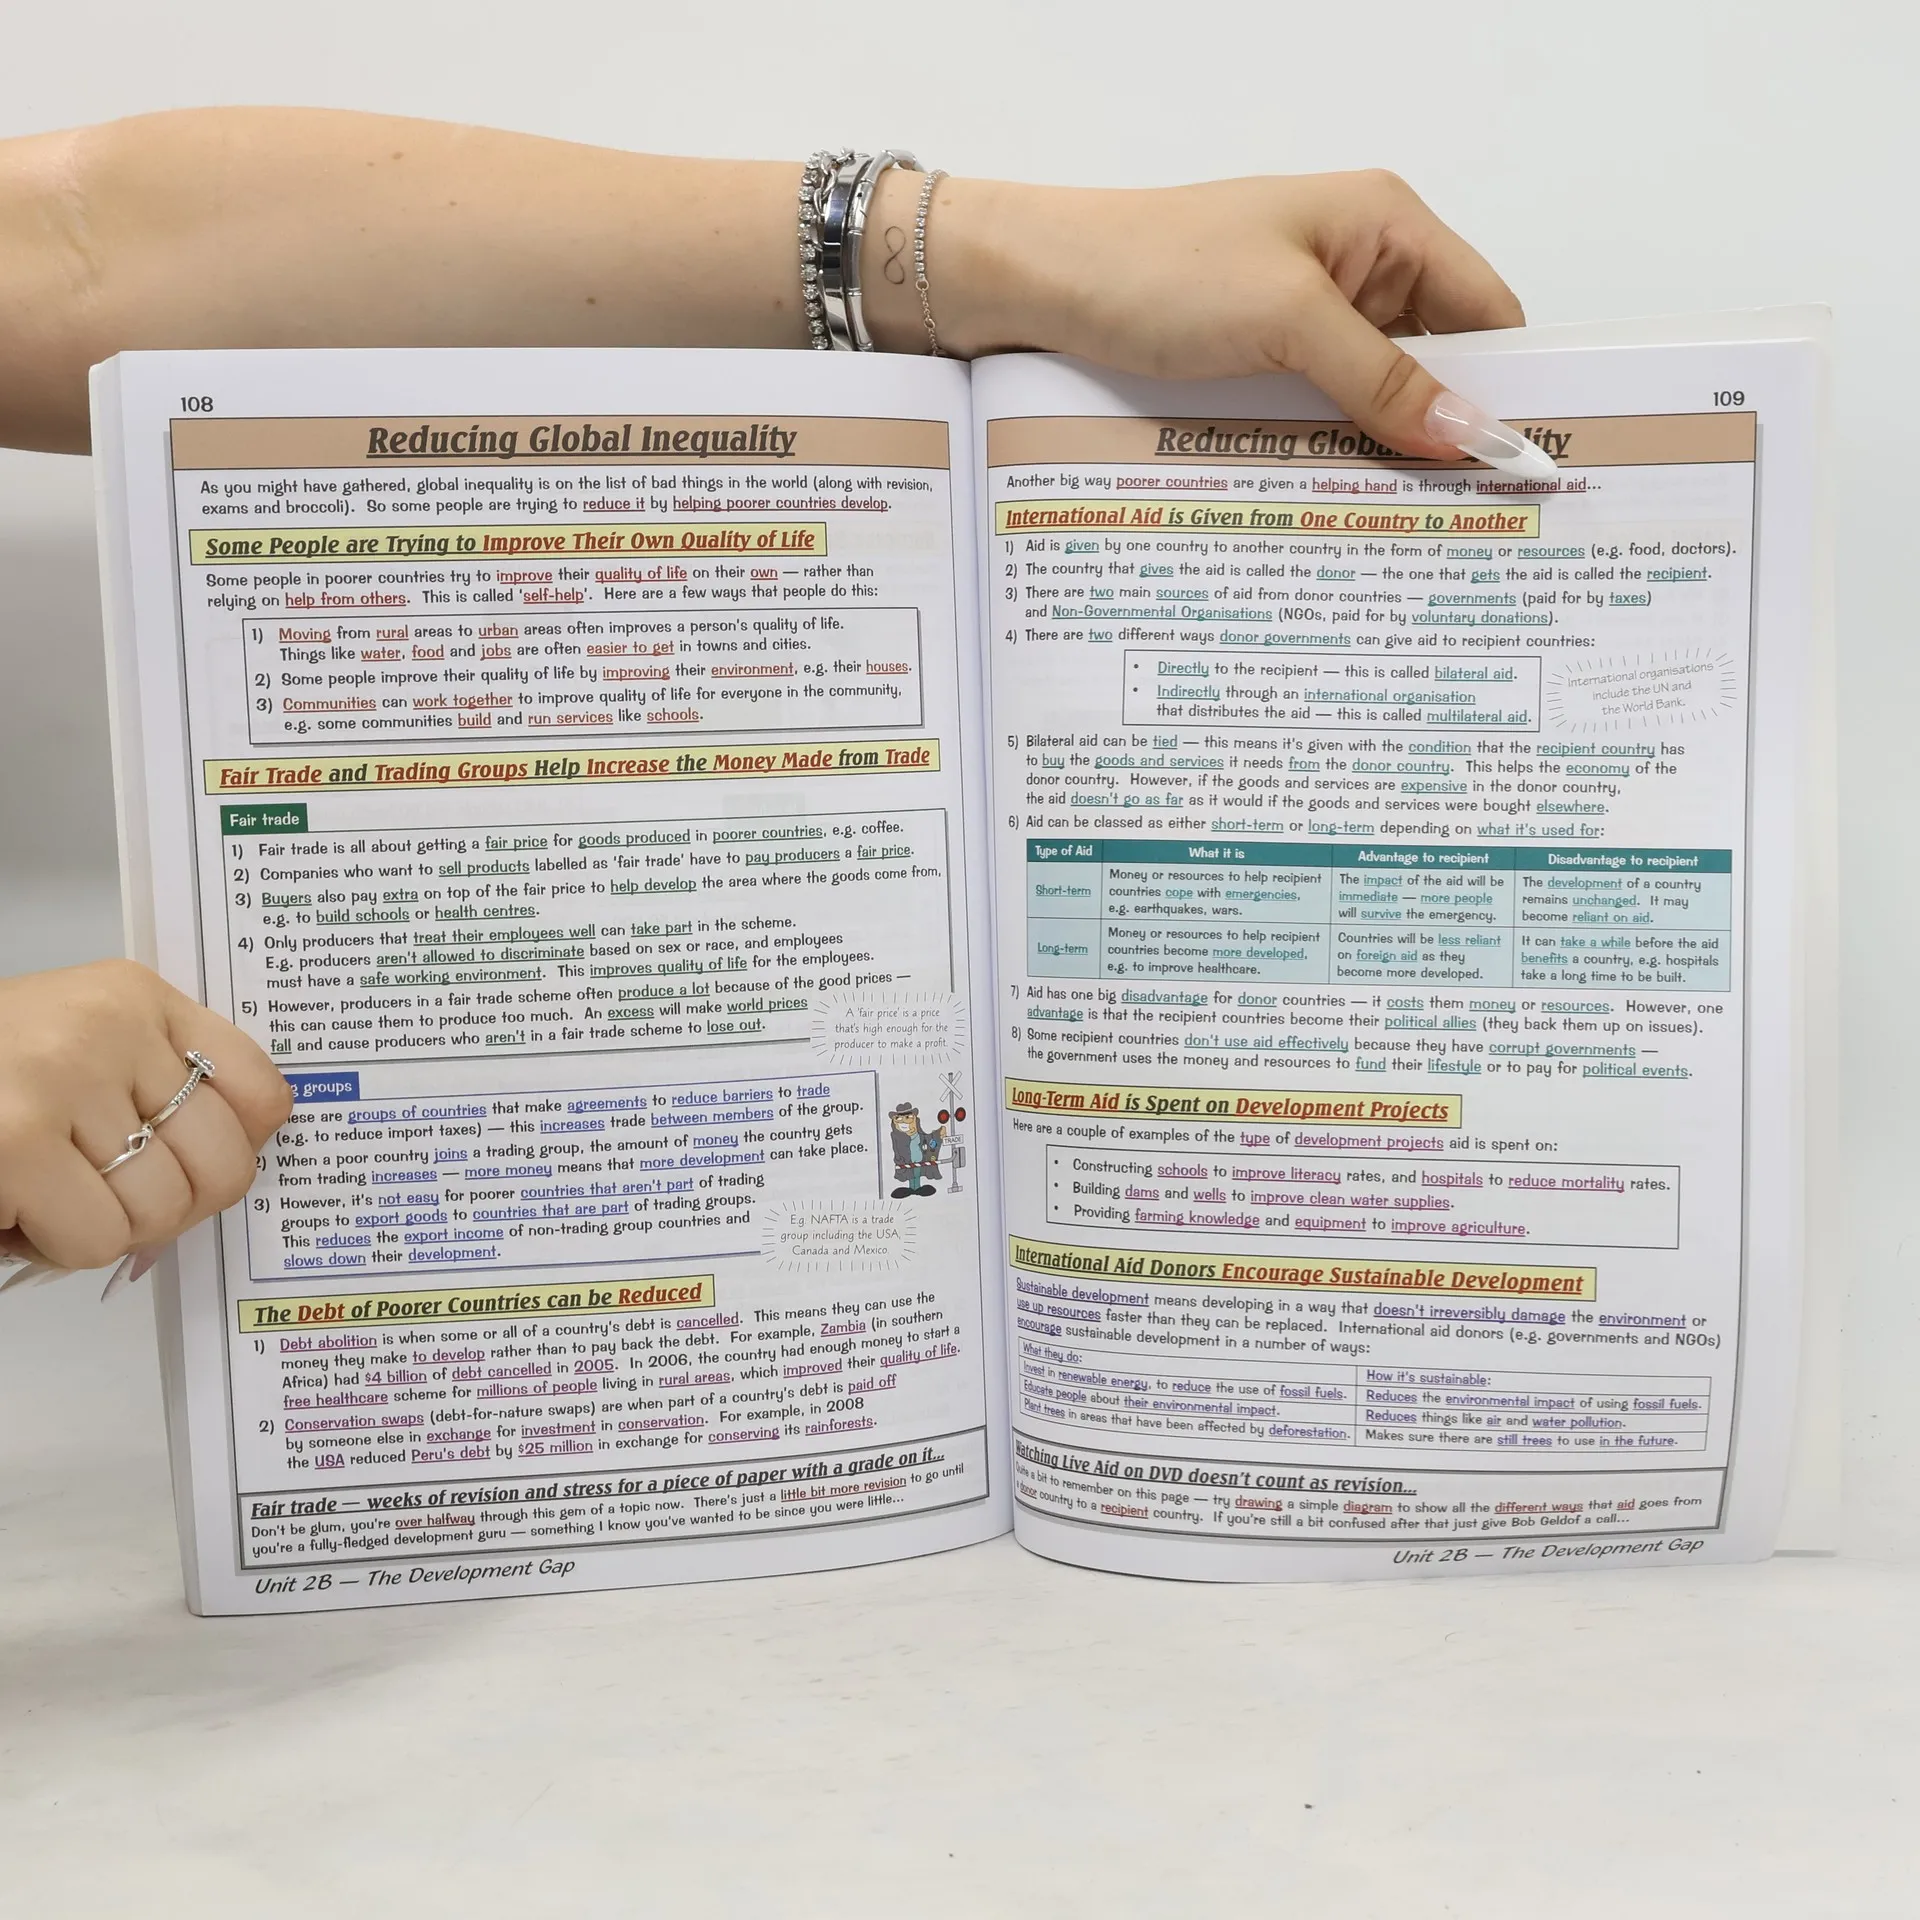 108
Reducing Global Inequality
As you might have gathered, global inequality is on the list of bad things in the world (along with revision,
exams and broccoli). So some people are trying to reduce it by helping poorer countries develop.
Some People are Trying to Improve Their Own Quality of Life
Some people in poorer countries try to improve their quality of life on their own — rather than
relying on help from others. This is called 'self-help'. Here are a few ways that people do this:
1) Moving from rural areas to urban areas often improves a person's quality of life.
Things like water, food and jobs are often easier to get in towns and cities.
2) Some people improve their quality of life by improving their environment, e.g. their houses.
3) Communities can work together to improve quality of life for everyone in the community,
e.g. some communities build and run services like schools.
Fair Trade and Trading Groups Help Increase the Money Made from Trade
Fair trade
1) Fair trade is all about getting a fair price for goods produced in poorer countries, e.g. coffee.
2) Companies who want to sell products labelled as 'fair trade' have to pay producers a fair price.
3) Buyers also pay extra on top of the fair price to help develop the area where the goods come from,
e.g. to build schools or health centres.
4) Only producers that treat their employees well can take part in the scheme.
E.g. producers aren't allowed to discriminate based on sex or race, and employees
must have a safe working environment. This improves quality of life for the employees.
5) However, producers in a fair trade scheme often produce a lot because of the good prices —
this can cause them to produce too much. An excess will make world prices
fall and cause producers who aren't in a fair trade scheme to lose out.
A 'fair price' is a price
that's high enough for the
producer to make a profit.
groups
are groups of countries that make agreements to reduce barriers to trade
(e.g. to reduce import taxes) — this increases trade between members of the group.
2) When a poor country joins a trading group, the amount of money the country gets
from trading increases — more money means that more development can take place.
3) However, it's not easy for poorer countries that aren't part of trading
groups to export goods to countries that are part of trading groups.
This reduces the export income of non-trading group countries and
slows down their development.
TRADE
E.g. NAFTA is a trade
group including the USA,
Canada and Mexico.
The Debt of Poorer Countries can be Reduced
1) Debt abolition is when some or all of a country's debt is cancelled. This means they can use the
money they make to develop rather than to pay back the debt. For example, Zambia (in southern
Africa) had $4 billion of debt cancelled in 2005. In 2006, the country had enough money to start a
free healthcare scheme for millions of people living in rural areas, which improved their quality of life.
2) Conservation swaps (debt-for-nature swaps) are when part of a country's debt is paid off
by someone else in exchange for investment in conservation. For example, in 2008
the USA reduced Peru's debt by $25 million in exchange for conserving its rainforests.
Fair trade — weeks of revision and stress for a piece of paper with a grade on it...
Don't be glum, you're over halfway through this gem of a topic now. There's just a little bit more revision to go until
you're a fully-fledged development guru — something I know you've wanted to be since you were little...
Unit 2B — The Development Gap
109
Reducing
Another big way poorer countries are given a helping hand is through international aid...
International Aid is Given from One Country to Another
1) Aid is given by one country to another country in the form of money or resources (e.g. food, doctors).
2) The country that gives the aid is called the donor — the one that gets the aid is called the recipient.
3) There are two main sources of aid from donor countries — governments (paid for by taxes)
and Non-Governmental Organisations (NGOs, paid for by voluntary donations).
4) There are two different ways donor governments can give aid to recipient countries:
• Directly to the recipient — this is called bilateral aid.
• Indirectly through an international organisation
that distributes the aid — this is called multilateral aid.
International organisations
include the UN and
the World Bank.
5) Bilateral aid can be tied — this means it's given with the condition that the recipient country has
to buy the goods and services it needs from the donor country. This helps the economy of the
donor country. However, if the goods and services are expensive in the donor country,
the aid doesn't go as far as it would if the goods and services were bought elsewhere.
6) Aid can be classed as either short-term or long-term depending on what it's used for:
Type of Aid What it is Advantage to recipient Disadvantage to recipient
Short-term
Money or resources to help recipient
countries cope with emergencies,
e.g. earthquakes, wars.
The impact of the aid will be
immediate — more people
will survive the emergency.
The development of a country
remains unchanged. It may
become reliant on aid.
Long-term
Money or resources to help recipient
countries become more developed,
e.g. to improve healthcare.
Countries will be less reliant
on foreign aid as they
become more developed.
It can take a while before the aid
benefits a country, e.g. hospitals
take a long time to be built.
7) Aid has one big disadvantage for donor countries — it costs them money or resources. However, one
advantage is that the recipient countries become their political allies (they back them up on issues).
8) Some recipient countries don't use aid effectively because they have corrupt governments —
the government uses the money and resources to fund their lifestyle or to pay for political events.
Long-Term Aid is Spent on Development Projects
Here are a couple of examples of the type of development projects aid is spent on:
• Constructing schools to improve literacy rates, and hospitals to reduce mortality rates.
• Building dams and wells to improve clean water supplies.
• Providing farming knowledge and equipment to improve agriculture.
International Aid Donors Encourage Sustainable Development
Sustainable development means developing in a way that doesn't irreversibly damage the environment or
use up resources faster than they can be replaced. International aid donors (e.g. governments and NGOs)
encourage sustainable development in a number of ways:
What they do: How it's sustainable:
Invest in renewable energy, to reduce the use of fossil fuels. Reduces the environmental impact of using fossil fuels.
Educate people about their environmental impact. Reduces things like air and water pollution.
Plant trees in areas that have been affected by deforestation. Makes sure there are still trees to use in the future.
Watching Live Aid on DVD doesn't count as revision...
Quite a bit to remember on this page — try drawing a simple diagram to show all the different ways that aid goes from
a donor country to a recipient country. If you're still a bit confused after that just give Bob Geldof a call...
Unit 2B — The Development Gap